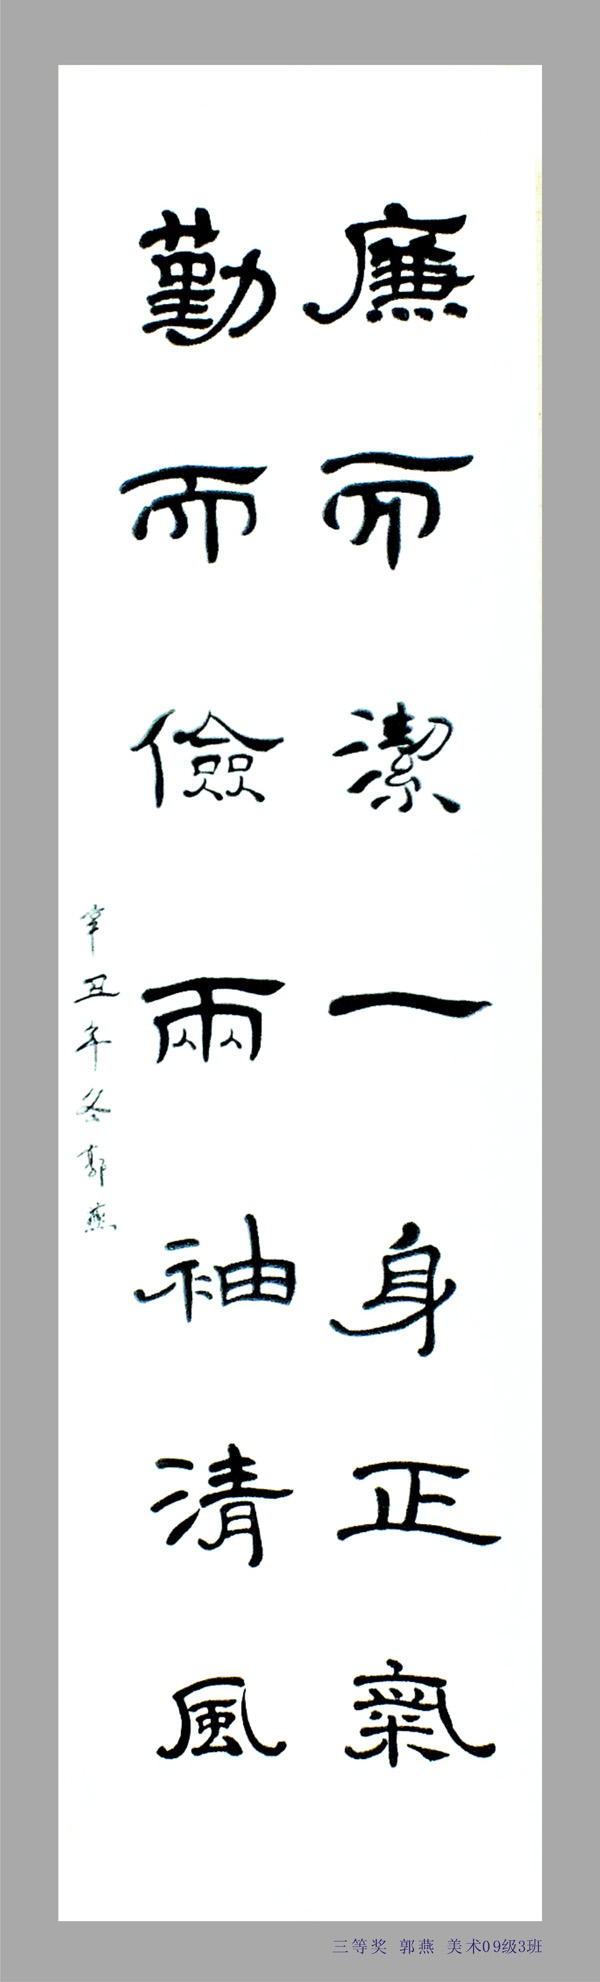 廉而潔一身正氣
勤而儉兩袖清風
辛丑年冬郭燕
三等奖 郭燕 美术09级3班